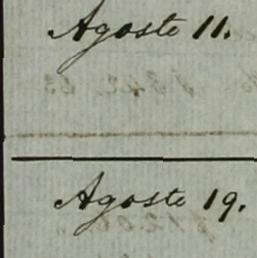 Agosto 11.
Agosto 19.